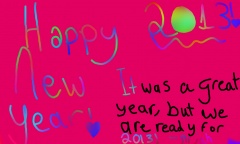 Happy 2013!
New
Year!
It was a great
year, but we
are ready for
2013!